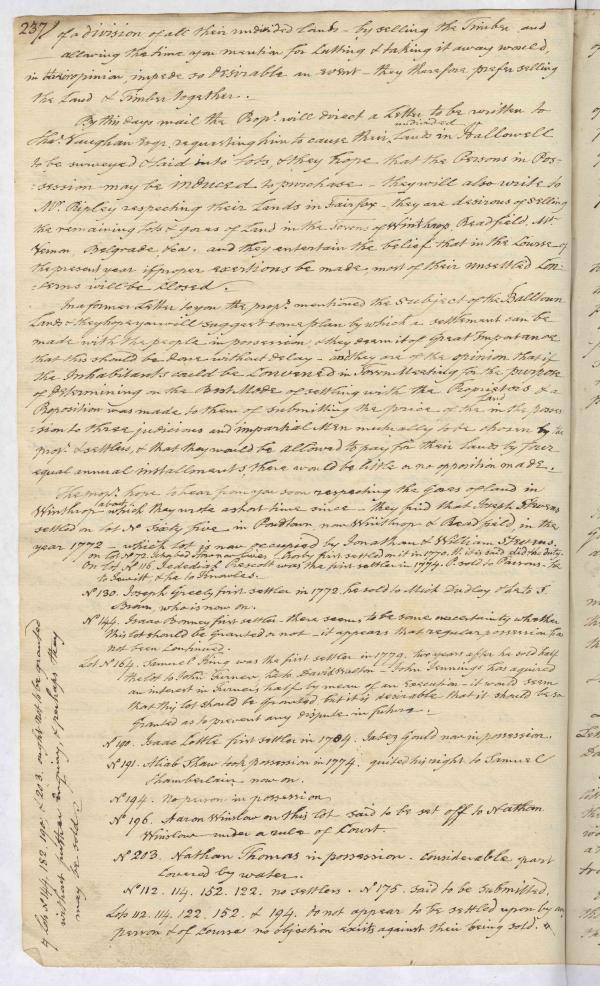 237
of a division of all their undivided lands – by selling the Timber and
allowing the time you mention for Cutting & taking it away would,
in their opinion, impede so desirable an event – they therefore prefer selling
the Land & Timber together.
By this days mail the Propˢ. will direct a Letter to be written to
Chaˢ. Vaughan Esqr. requesting him to cause their undivided Lands in Hallowell
to be surveyed & laid into lots, & they hope that the Persons in Pos-
session may be induced to purchase – they will also write to
Mr. Ripley respecting their Lands in Fairfax – they are desirous of selling
the remaining lots & gores of Land in the Towns of Winthrop, Readfield, Mt.
Vernon, Belgrade &ca. and they entertain the belief that in the Course of
the present year if proper exertions be made, most of their unsettled Con-
cerns will be closed.
In a former Letter to you the propˢ. mentioned the subject of the Balltown
Lands & they hope you will suggest some plan by which a settlement can be
made with the people in possession, & they deem it of Great Importance
that this should be done without delay – and they are of the opinion that if
the Inhabitants could be Convened in Town Meeting for the purpose
of determining on the Best Mode of settling with the Proprietors & a
Proposition was made to them of submitting the price of the land in the posses-
-sion to three judicious and impartial Men mutually to be chosen by the
propˢ. & settlers, & that they would be allowed to pay for their lands by four
equal annual installments, there would be little or no opposition made.
The propˢ. hope to hear from you soon respecting the Gores of land in
Winthrop about which they wrote a short time since – they find that Joseph Stevens
settled on lot No. Sixty five – in Pondtown, now Winthrop & Readfield, in the
year 1772 – which lot is now occupied by Jonathan & William Stevens.
on Lot No. 72 first settled on it in 1770. it is said did the duty.
On lot No. 116. Jedediah Prescott was the first settler in 1774. P. sold to Parsons – he
to Jewitt, & he to Knowles.
No. 130. Joseph Greely first settler in 1772. he sold to Mich Dudley & he to J.
Bean, who is now on.
No. 144. Isaac Bonney first settler – there seems to be some uncertainty whether
this lot should be Granted or not – it appears that regular possession has
not been Continued.
Lot No. 164. Samuel King was the first settler in 1779. two years after he sold half
the lot to John Turner, & to David Dalton – John Jennings has aquired
an interest in Turner's half by mean of an Execution – it would seem
that this lot should be Granted but it is desirable that it should be so
Granted as to prevent any dispute in future.
No. 190. Isaac Lottle first settler in 1784. Jabez Gould now in possession.
No. 191. Ahiab Shaw took possession in 1774. quited his right to Samuel
Chamberlain now on.
No. 194. No person in possession
No. 196. Aaron Winslow on this lot said to be set off to Nathan
Winslow under a rule of Court.
No. 203. Nathan Thomas in possession. Considerable part
Covered by water.
No. 112. 114. 152. 122. no settlers. No. 175. said to be submitted.
Lots 112. 114. 122. 152. & 194. do not appear to be settled upon by any
person & of Course no objection exists against their being sold.
Lots No. 144. 182. 190. & 203. ought not to be granted
without further enquiry, & perhaps they
may be sold